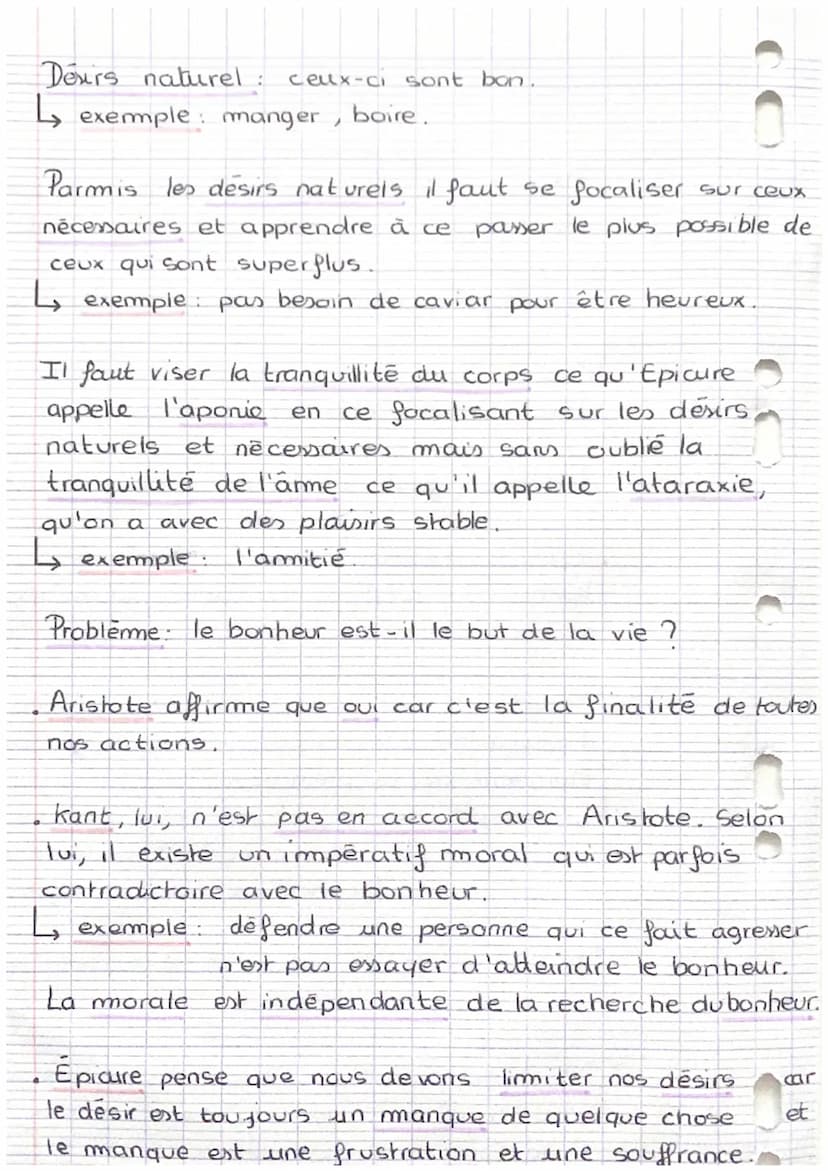 Désirs naturel : ceux-ci sont bon.
↳ exemple : manger, boire.
Parmis les désirs naturels il faut se focaliser sur ceux
nécessaires et apprendre à ce passer le plus possible de
ceux qui sont superflus.
↳ exemple : pas besoin de caviar pour être heureux.
Il faut viser la tranquillité du corps ce qu'Epicure
appelle l'aponie en ce focalisant sur les désirs
naturels et nécessaires mais sans oublié la
tranquillité de l'âme ce qu'il appelle l'ataraxie,
qu'on a avec des plaisirs stable.
↳ exemple : l'amitié.
Problème : le bonheur est-il le but de la vie ?
. Aristote affirme que oui car c'est la finalité de toutes
nos actions.
. Kant, lui, n'est pas en accord avec Aristote. Selon
lui, il existe un impératif moral qui est parfois
contradictoire avec le bonheur.
↳ exemple : défendre une personne qui ce fait agresser
n'est pas essayer d'atteindre le bonheur.
La morale est indépendante de la recherche du bonheur.
. Épicure pense que nous devons limiter nos désirs car
le désir est toujours un manque de quelque chose et
le manque est une frustration et une souffrance.